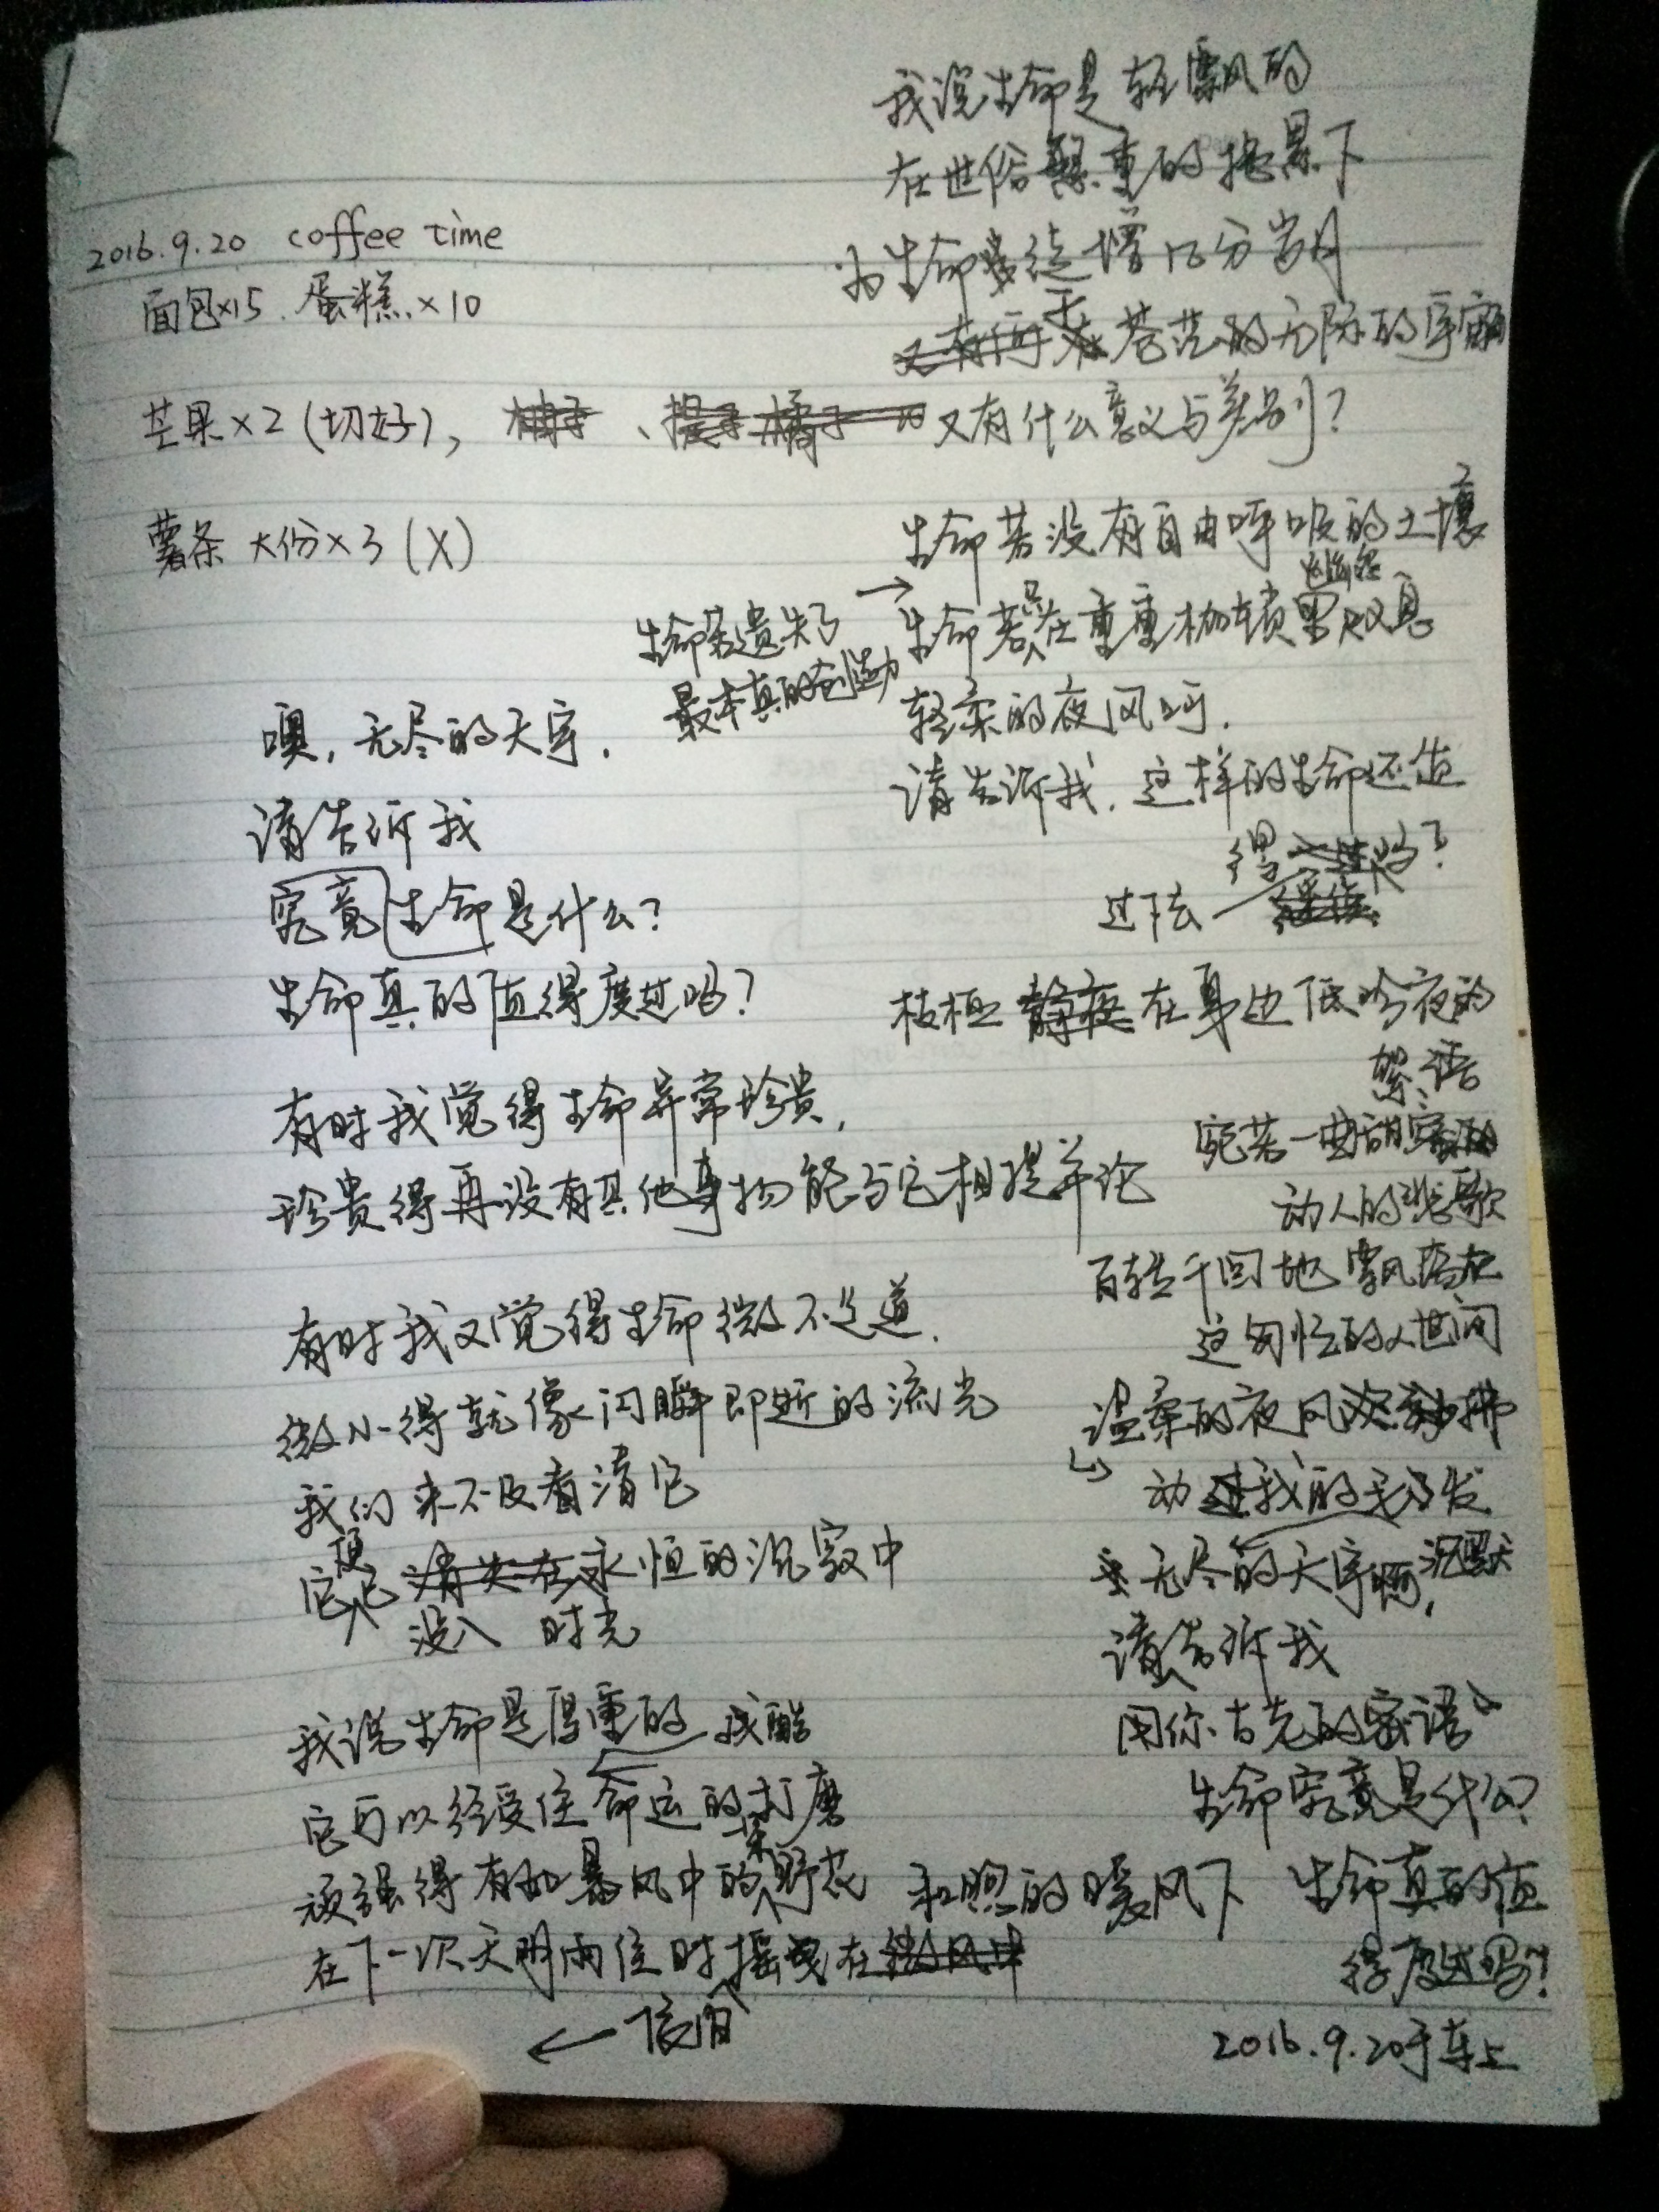 2016.9.20 coffee time
面包×15、蛋糕×10
芒果×2(切好),柚子、提子 橘子
薯条 大份×3 (X)
噢,无尽的天宇,
请告诉我
究竟生命是什么?
生命真的值得度过吗?
有时我觉得生命异常珍贵,
珍贵得再没有其他事物能与它相提并论
有时我又觉得生命微不足道,
微小得就像闪瞬即逝的流光
我们来不及看清它
它便已消失在永恒的沉寂中
没入 时光
我说生命是厚重的 残酷
它可以经受住命运的打磨
顽强得有如暴风中的朵野花
在下一次天明雨住时摇曳在微风中
和煦的暖风下
← 接背
我说生命是轻飘的
在世俗繁重的拖累下
为生命徒增几分岁月
又有何 于在苍茫的无际的宇宙
又有什么意义与差别?
生命若没有自由呼吸的土壤
生命若遗失了
最本真的创造力
→
生命若只在重重枷锁里叹息
轻柔的夜风呵,
请告诉我,这样的生命还值
得
过下去 继续
吗?
枝桠 静夜在身边低吟夜的
絮语
宛若一曲甜蜜的
动人的悲歌
百转千回地飘荡在
这匆忙的人世间
温柔的夜风 拂
动过我的毛发
无尽的天宇啊, 沉默
请告诉我
用你古老的密语
生命究竟是什么?
生命真的值
得度过吗?!
2016.9.20于车上